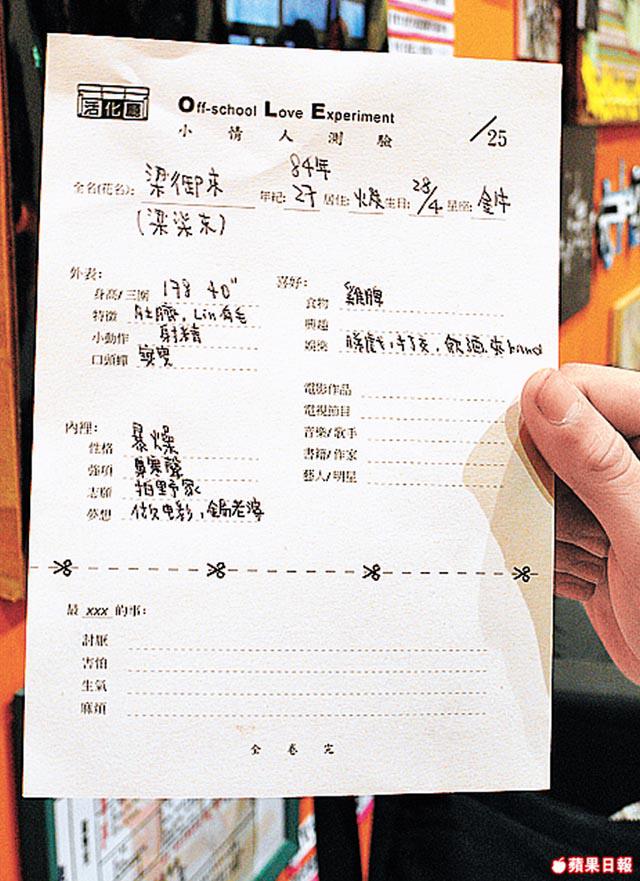 活化廳
Off-school Love Experiment
小情人測驗
/25
84年
全名(花名): 梁御東 年紀: 27 居住: 火燦 生日: 28/4 星座: 金牛
(梁柒東)
外表:
身高/三圍 178 40"
特徵 肚臍,Lin有毛
小動作 射精
口頭蟬
內裡:
性格 暴燥
強項 鼻寒聲
志願 拍野家
夢想 做电影,錫老婆
喜好:
食物 雞脾
興趣
娛樂 睇戲,打交,飲酒,夾band
電影作品
電視節目
音樂/歌手
書籍/作家
藝人/明星
最 xxx 的事:
討厭
害怕
生氣
麻煩
全卷完
蘋果日報